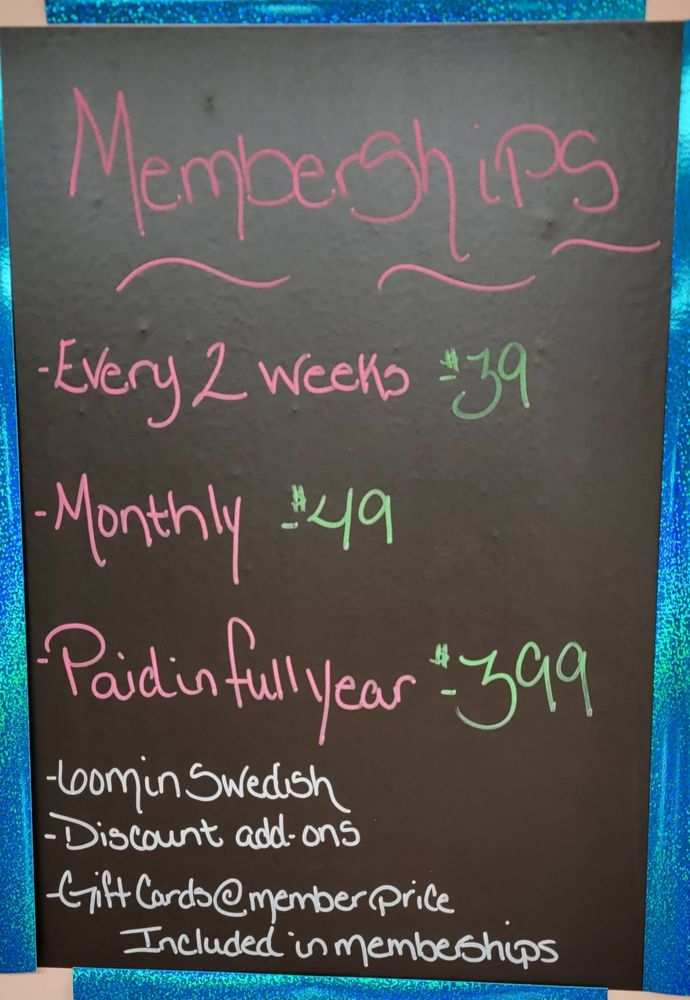 Memberships
-Every 2 weeks $39
-Monthly $49
-Paid in full year $399
-60min Swedish
-Discount add-ons
-Gift Cards@member price
Included in memberships